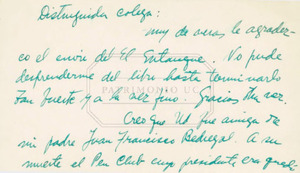 Distinguida colega:
muy de veras le agradez-
co el envío del El Estanque. No pude
desprenderme del libro hasta terminarlo
Tan fuerte y a la vez fino. Gracias
Creo que Ud fue amiga de
mi padre Juan Francisco Bedregal. A su
muerte el Pen Club cuyo presidente era
PATRIMONIO UC